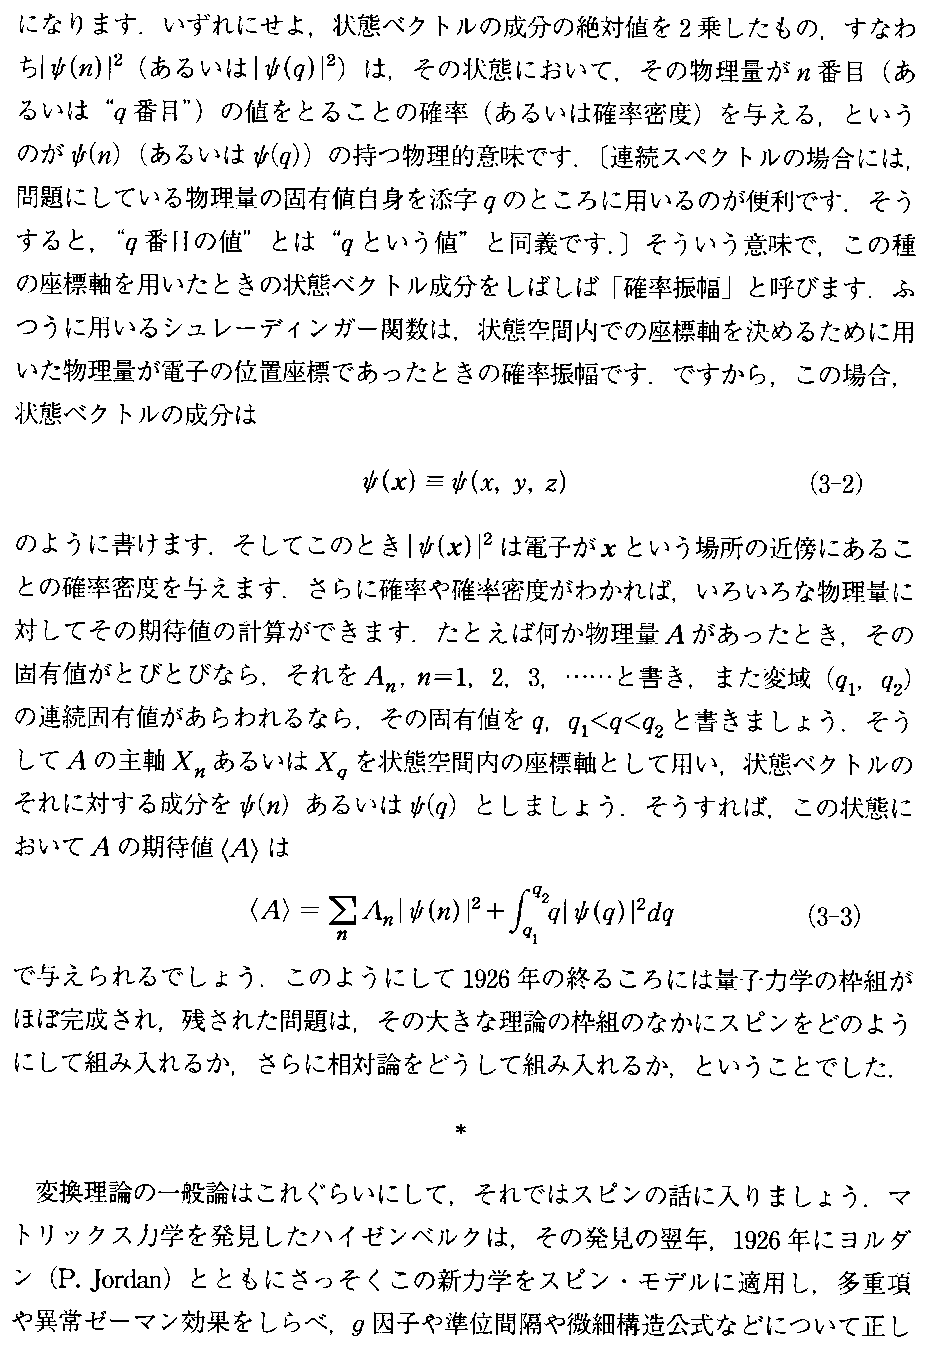 になります．いずれにせよ，状態ベクトルの成分の絶対値を2乗したもの，すなわ
ち|ψ(n)|²（あるいは|ψ(q)|²）は，その状態において，その物理量がn番目（あ
るいは“q番目”）の値をとることの確率（あるいは確率密度）を与える，という
のがψ(n)（あるいはψ(q)）の持つ物理的意味です．〔連続スペクトルの場合には，
問題にしている物理量の固有値自身を添字qのところに用いるのが便利です．そう
すると，“q番目の値”とは“qという値”と同義です．〕そういう意味で，この種
の座標軸を用いたときの状態ベクトル成分をしばしば「確率振幅」と呼びます．ふ
つうに用いるシュレーディンガー関数は，状態空間内での座標軸を決めるために用
いた物理量が電子の位置座標であったときの確率振幅です．ですから，この場合，
状態ベクトルの成分は
ψ(x)≡ψ(x, y, z) (3-2)
のように書けます．そしてこのとき|ψ(x)|²は電子がxという場所の近傍にあるこ
との確率密度を与えます．さらに確率や確率密度がわかれば，いろいろな物理量に
対してその期待値の計算ができます．たとえば何か物理量Aがあったとき，その
固有値がとびとびなら，それをAₙ, n=1，2，3，……と書き，また変域（q₁，q₂）
の連続固有値があらわれるなら，その固有値をq，q₁<q<q₂と書きましょう．そう
してAの主軸XₙあるいはX_qを状態空間内の座標軸として用い，状態ベクトルの
それに対する成分をψ(n)あるいはψ(q)としましょう．そうすれば，この状態に
おいてAの期待値⟨A⟩は
⟨A⟩ = ∑ₙ Aₙ|ψ(n)|² + ∫_{q₁}^{q₂} q|ψ(q)|²dq (3-3)
で与えられるでしょう．このようにして1926年の終るころには量子力学の枠組が
ほぼ完成され，残された問題は，その大きな理論の枠組のなかにスピンをどのよう
にして組み入れるか，さらに相対論をどうして組み入れるか，ということでした．
*
変換理論の一般論はこれぐらいにして，それではスピンの話に入りましょう．マ
トリックス力学を発見したハイゼンベルクは，その発見の翌年，1926年にヨルダ
ン（P. Jordan）とともにさっそくこの新力学をスピン・モデルに適用し，多重項
や異常ゼーマン効果をしらべ，g因子や準位間隔や微細構造公式などについて正し